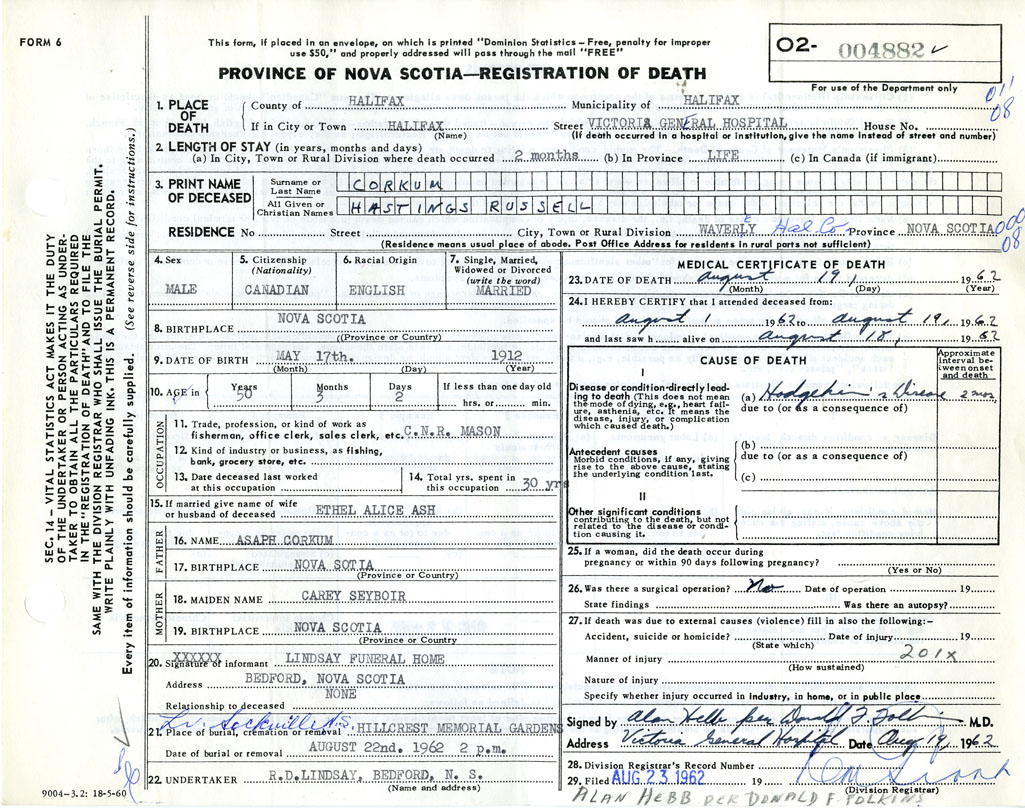 FORM 6
This form, if placed in an envelope, on which is printed "Dominion Statistics – Free, penalty for improper
use $50," and properly addressed will pass through the mail "FREE"
PROVINCE OF NOVA SCOTIA—REGISTRATION OF DEATH
02- 004882 ✓
For use of the Department only
011
08
SEC. 14 – VITAL STATISTICS ACT MAKES IT THE DUTY
OF THE UNDERTAKER OR PERSON ACTING AS UNDER-
TAKER TO OBTAIN ALL THE PARTICULARS REQUIRED
IN THE "REGISTRATION OF DEATH" AND TO FILE THE
SAME WITH THE DIVISION REGISTRAR WHO SHALL ISSUE THE BURIAL PERMIT.
WRITE PLAINLY WITH UNFADING INK. THIS IS A PERMANENT RECORD.
Every item of information should be carefully supplied. (See reverse side for instructions.)
1. PLACE OF DEATH
County of HALIFAX Municipality of HALIFAX
If in City or Town HALIFAX Street VICTORIA GENERAL HOSPITAL House No.
(Name) (If death occurred in a hospital or institution, give the name instead of street and number)
2. LENGTH OF STAY (in years, months and days)
(a) In City, Town or Rural Division where death occurred 2 months (b) In Province LIFE (c) In Canada (if immigrant)
3. PRINT NAME OF DECEASED
Surname or Last Name CORKUM
All Given or Christian Names HASTINGS RUSSELL
RESIDENCE No Street City, Town or Rural Division WAVERLY E Hal. Co. Province NOVA SCOTIA 000
08
(Residence means usual place of abode. Post Office Address for residents in rural parts not sufficient)
4. Sex
MALE
5. Citizenship
(Nationality)
CANADIAN
6. Racial Origin
ENGLISH
7. Single, Married,
Widowed or Divorced
(write the word)
MARRIED
8. BIRTHPLACE NOVA SCOTIA
((Province or Country)
9. DATE OF BIRTH MAY 17th. 1912
(Month) (Day) (Year)
10. AGE in
Years 50
Months 3
Days 2
If less than one day old
hrs. or min.
OCCUPATION
11. Trade, profession, or kind of work as
fisherman, office clerk, sales clerk, etc. C.N.R. MASON
12. Kind of industry or business, as fishing,
bank, grocery store, etc.
13. Date deceased last worked
at this occupation
14. Total yrs. spent in
this occupation 30 yrs
15. If married give name of wife
or husband of deceased ETHEL ALICE ASH
FATHER
16. NAME ASAPH CORKUM
17. BIRTHPLACE NOVA SOTIA
(Province or Country)
MOTHER
18. MAIDEN NAME CAREY SEYBOIR
19. BIRTHPLACE NOVA SCOTIA
(Province or Country
XXXXXX
20. Signature of informant LINDSAY FUNERAL HOME
Address BEDFORD, NOVA SCOTIA
Relationship to deceased NONE
Lr. Sackville N.S.
21. Place of burial, cremation or removal HILLCREST MEMORIAL GARDENS
Date of burial or removal AUGUST 22nd. 1962 2 p.m.
22. UNDERTAKER R.D.LINDSAY, BEDFORD, N. S.
(Name and address)
9004-3.2: 18-5-60
MEDICAL CERTIFICATE OF DEATH
23. DATE OF DEATH August 19, 1962
(Month) (Day) (Year)
24. I HEREBY CERTIFY that I attended deceased from:
August 1 1962 to August 19, 1962
and last saw h alive on August 18, 1962
CAUSE OF DEATH
Approximate
interval be-
tween onset
and death
I
Disease or condition directly lead-
ing to death (This does not mean
the mode of dying, e.g., heart fail-
ure, asthenia, etc. It means the
disease, injury, or complication
which caused death.)
(a) Hodgekin's Disease 2 mos.
due to (or as a consequence of)
Antecedent causes
Morbid conditions, if any, giving
rise to the above cause, stating
the underlying condition last.
(b)
due to (or as a consequence of)
(c)
II
Other significant conditions
contributing to the death, but not
related to the disease or condi-
tion causing it.
25. If a woman, did the death occur during
pregnancy or within 90 days following pregnancy?
(Yes or No)
26. Was there a surgical operation? No Date of operation 19
State findings Was there an autopsy?
27. If death was due to external causes (violence) fill in also the following:–
Accident, suicide or homicide? Date of injury 19
(State which)
201x
Manner of injury
(How sustained)
Nature of injury
Specify whether injury occurred in industry, in home, or in public place
Signed by Alan Hebb per Donald F. Folkins M.D.
Address Victoria General Hospital Date Aug 19, 1962
28. Division Registrar's Record Number
29. Filed AUG 23 1962 19
(Division Registrar)
ALAN HEBB PER DONALD F. FOLKINS